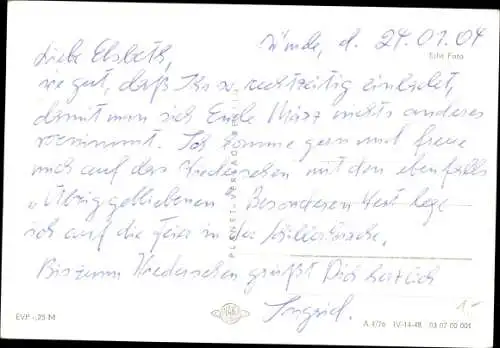 Bünde, d. 24.01.04
Echt Foto
Liebe Elsbeth,
wie gut, daß Ihr so rechtzeitig einladet,
damit man sich Ende März nichts anderes
vornimmt. Ich komme gern und freue
mich auf das Wiedersehen mit den ebenfalls
"Übriggebliebenen". Besonderen Wert lege
ich auf die Feier in der
Bis zum Wiedersehen grüßt Dich herzlich
Ingrid.
1.-
PLANET-VERLAG
EVP -,25 M
A 4/76 IV-14-48 03 07 00 001